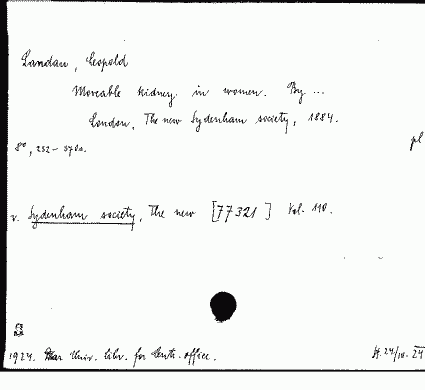 Landau, Leopold
Moveable kidney in women. By ...
London, The new Sydenham society, 1884.
8°, 232-370s. pl
v. Sydenham society, The new [77321] Vol. 110.
1924. Univ. libr. for Centr. office. 24/10. 24